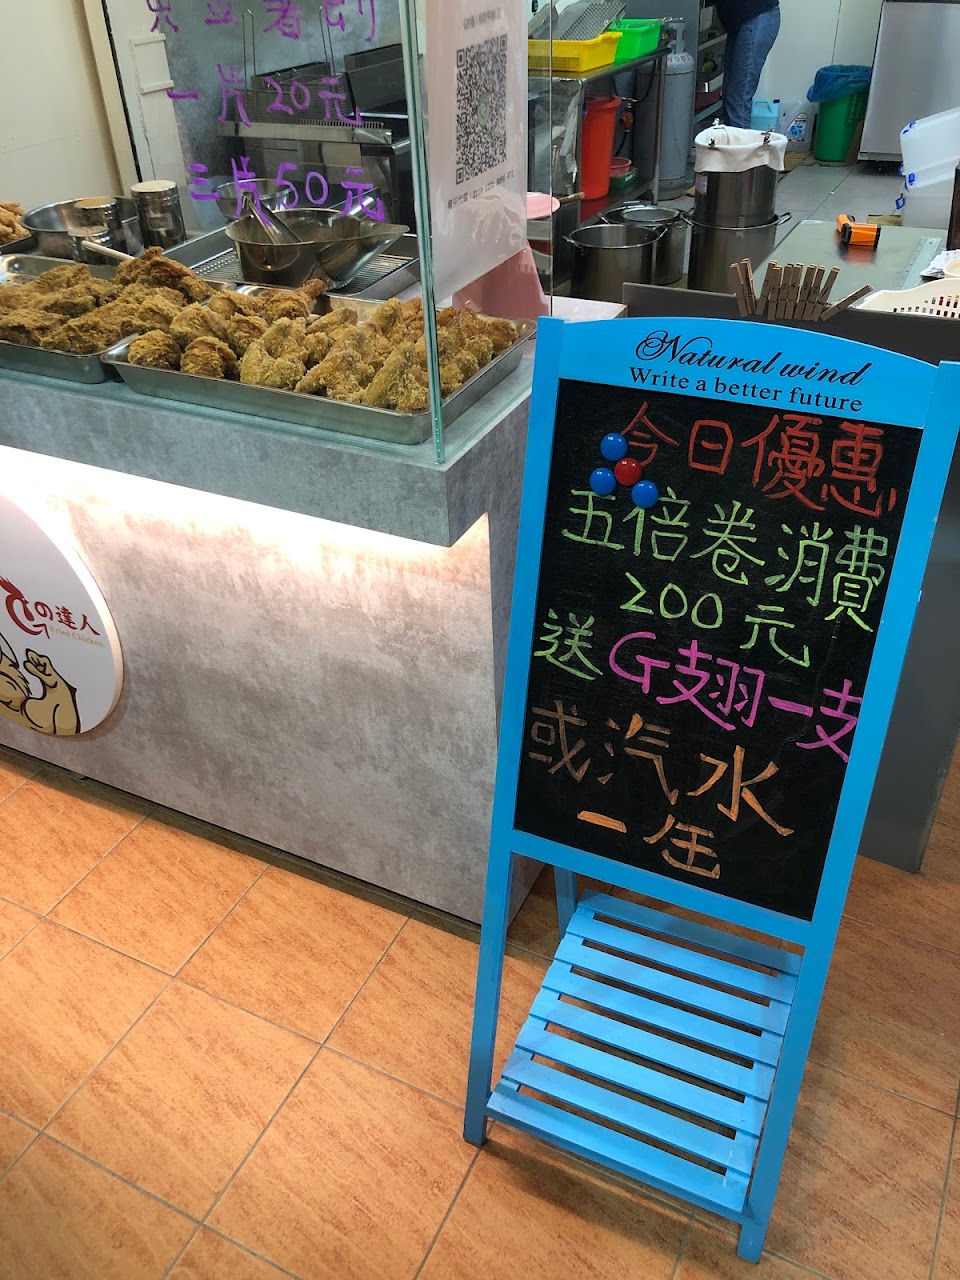 一片20元
三片50元
Natural wind
Write a better future
今日優惠
五倍卷消費
200元
送G翅一支
或汽水
一缶
の達人
Fried Chicken